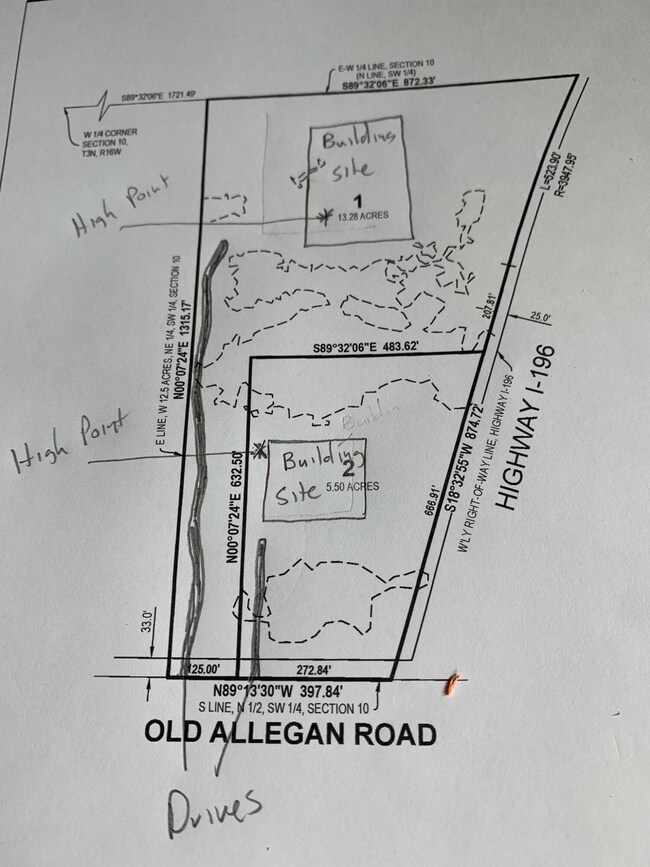 E-W 1/4 LINE, SECTION 10
(N LINE, SW 1/4)
S89°32'06"E 872.33'
S89°32'06"E 1721.49'
W 1/4 CORNER
SECTION 10,
T3N, R16W
Building
Site
1
13.28 ACRES
High Point
L=523.90'
R=3947.95'
E LINE, W 12.5 ACRES, NE 1/4, SW 1/4, SECTION 10
N00°07'24"E 1315.17'
207.81'
25.0'
S89°32'06"E 483.62'
HIGHWAY I-196
W'LY RIGHT-OF-WAY LINE, HIGHWAY I-196
S18°32'55"W 874.72'
666.91'
High Point
Buildin
Building
2
Site
5.50 ACRES
N00°07'24"E 632.50'
33.0'
125.00'
272.84'
N89°13'30"W 397.84'
S LINE, N 1/2, SW 1/4, SECTION 10
OLD ALLEGAN ROAD
Drives